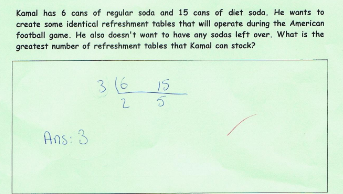 Kamal has 6 cans of regular soda and 15 cans of diet soda. He wants to
create some identical refreshment tables that will operate during the American
football game. He also doesn't want to have any sodas left over. What is the
greatest number of refreshment tables that Kamal can stock?
3 (6 15
2 5
Ans: 3